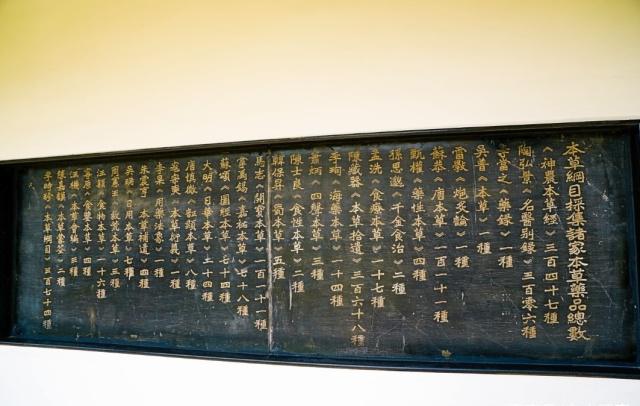 本草綱目採集諸家本草藥品總數
《神農本草經》三百四十七種
陶弘景《名醫別錄》三百零六種
李當之《藥錄》一種
吳普《本草》一種
雷斅《炮炙論》一種
蘇恭《唐本草》一百一十一種
甄權《藥性本草》四種
孫思邈《千金食治》二種
孟詵《食療本草》一十七種
陳藏器《本草拾遺》三百六十八種
李珣《海藥本草》一十四種
蕭炳《四聲本草》二種
陳士良《食性本草》二種
韓保昇《蜀本草》五種
馬志《開寶本草》一百一十一種
掌禹錫《嘉祐本草》七十八種
蘇頌《圖經本草》七十四種
大明《日華本草》二十四種
唐慎微《證類本草》八種
寇宗奭《本草衍義》一種
李杲《用藥法象》一種
朱震亨《本草補遺》四種
吳瑞《日用本草》七種
周憲王《救荒本草》二種
汪穎《食物本草》一十六種
寧原《食鑒本草》四種
汪機《本草會編》三種
陳嘉謨《本草蒙筌》二種
李時珍《本草綱目》三百七十四種